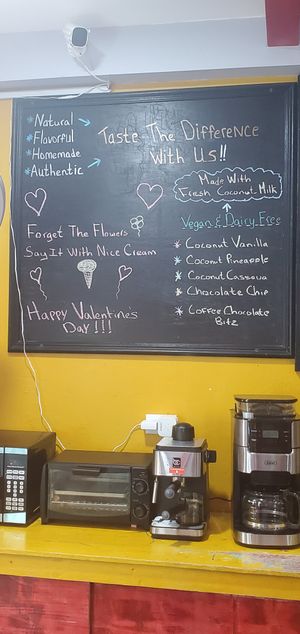 *Natural
*Flavorful
*Homemade
*Authentic
Taste The Difference
With Us!!
Made With
Fresh Coconut Milk
Vegan & Dairy Free
* Coconut Vanilla
* Coconut Pineapple
* Coconut Cassava
* Chocolate Chip
* Coffee Chocolate
Bitz
Forget The Flowers
Say It With Nice Cream
Happy Valentine's
Day!!!